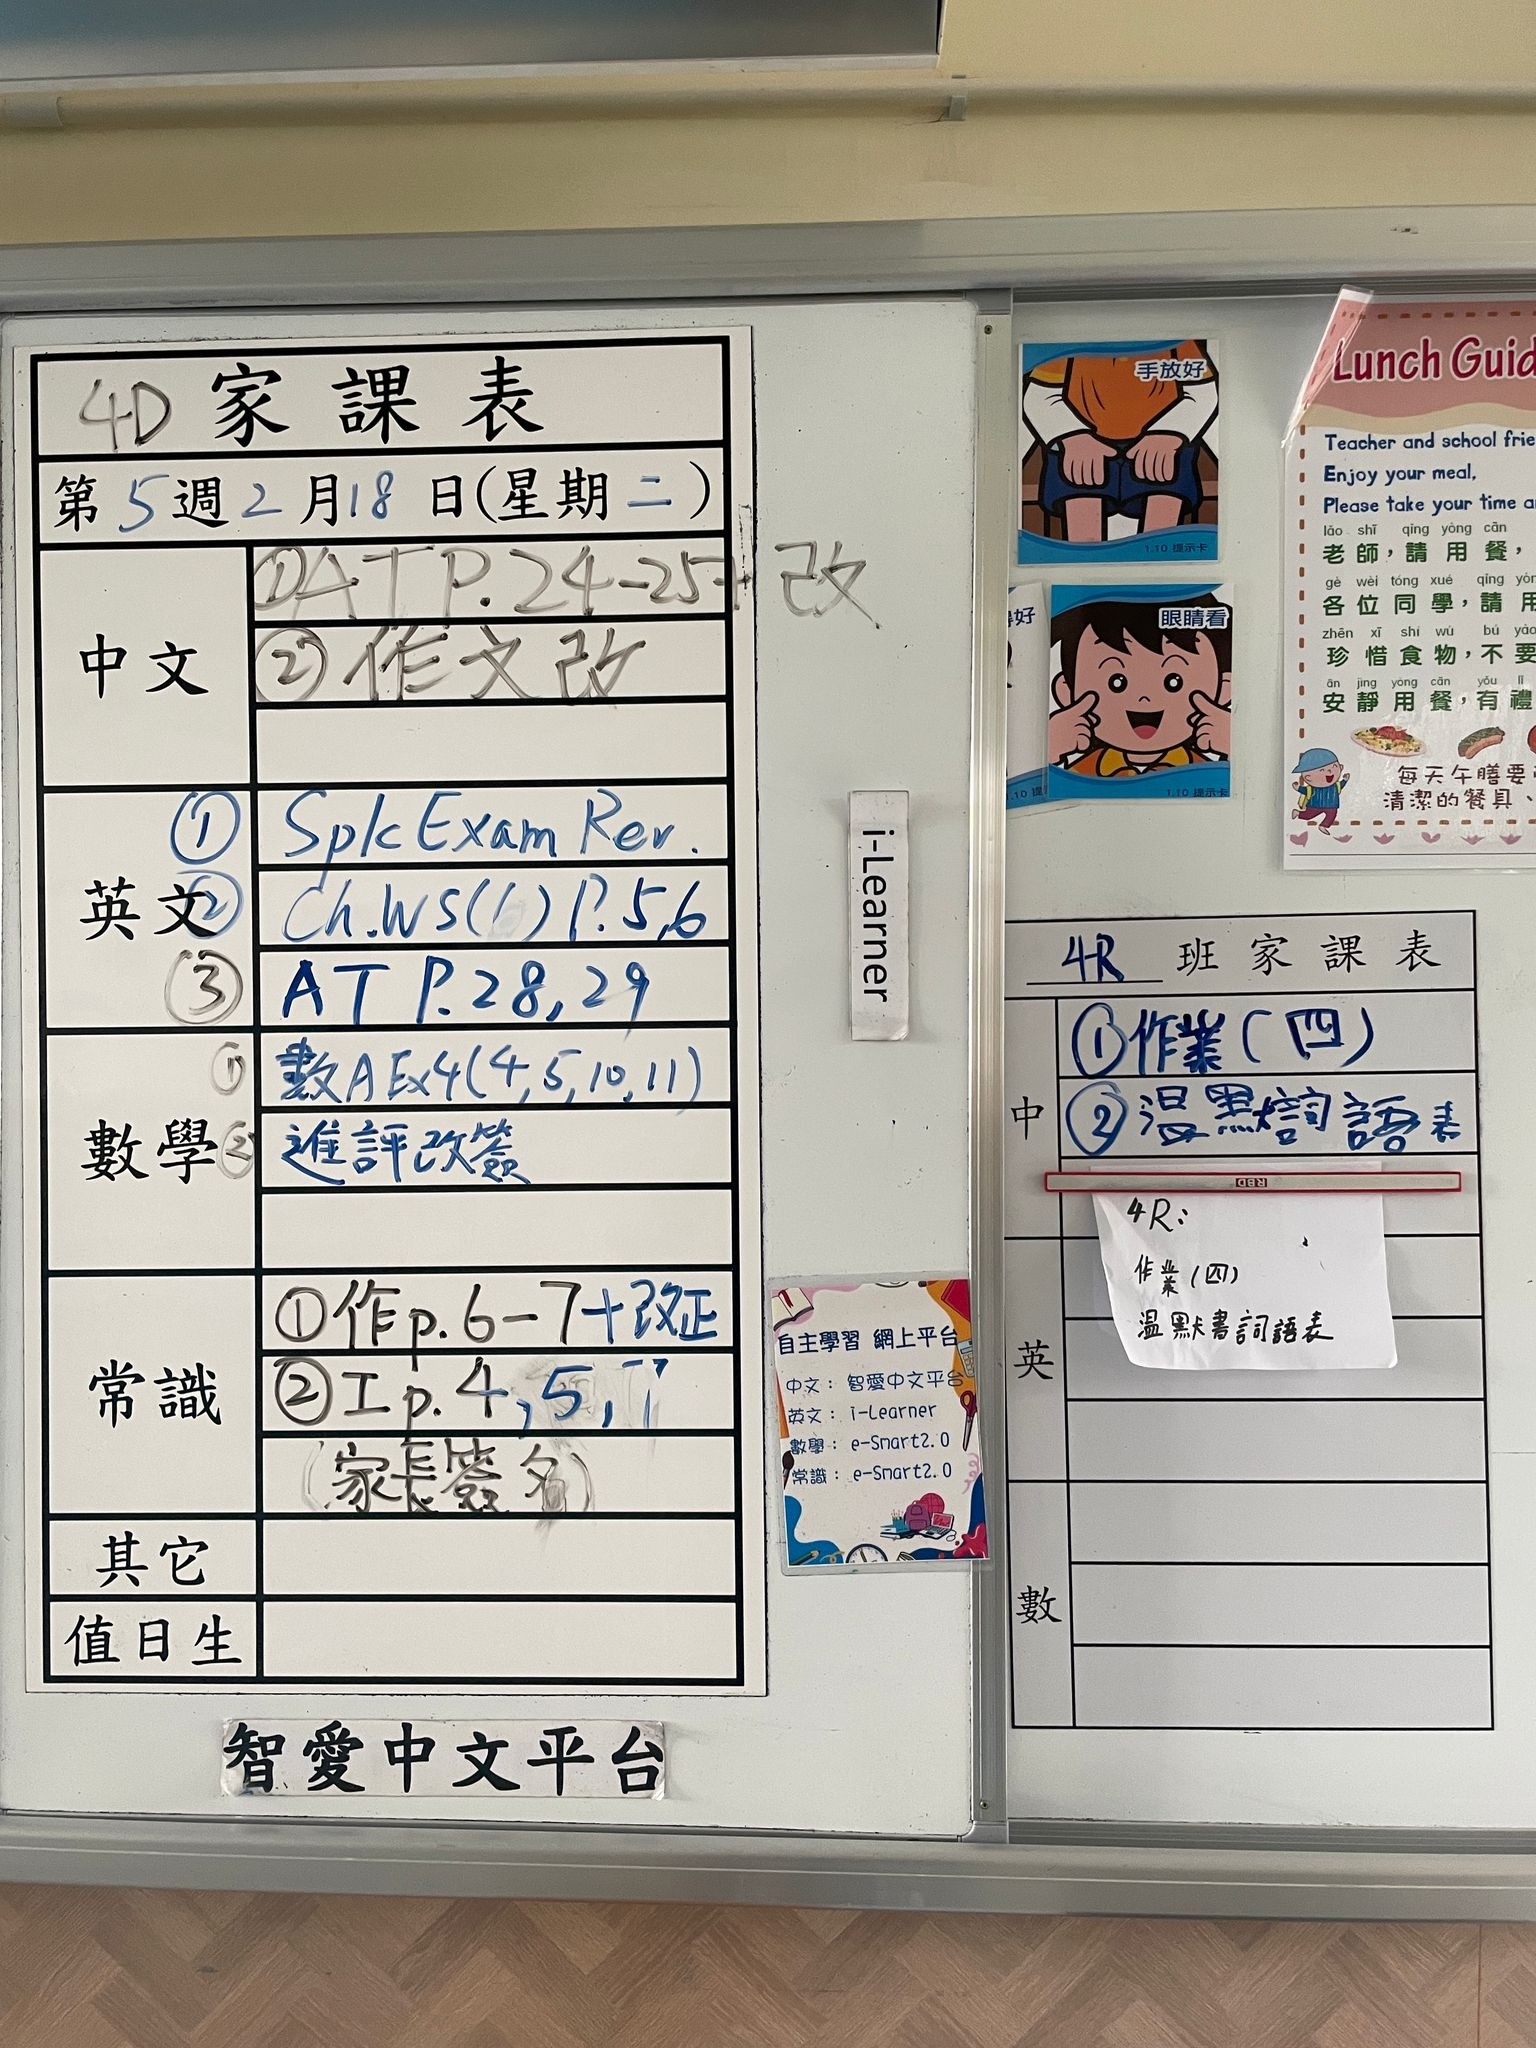 4D 家課表
第5週2月18日(星期二)
中文
①AT P.24-25+改
②作文改
英文
① Spk Exam Rev.
② Ch.WS(1) P.5,6
③ AT P.28,29
數學
① 數A Ex4(4,5,10,11)
② 進評改簽
常識
①作p.6-7+改正
②I p.4,5,
(家長簽名)
其它
值日生
智愛中文平台
i-Learner
自主學習 網上平台
中文：智愛中文平台
英文：i-Learner
數學：e-Smart2.0
常識：e-Smart2.0
手放好
1.10 提示卡
好
1.10 提
眼睛看
1.10 提示卡
Lunch Guid
Teacher and school frie
Enjoy your meal,
Please take your time a
lǎo shī qǐng yòng cān
老師，請用餐，
gè wèi tóng xué qǐng yòn
各位同學，請用
zhēn xī shí wù bú yào
珍惜食物，不要
ān jìng yòng cān yǒu lǐ
安靜用餐，有禮
每天午膳要
清潔的餐具、
4R 班家課表
中
①作業(四)
②温默書詞語表
RBD
4R:
作業(四)
温默書詞語表
英
數